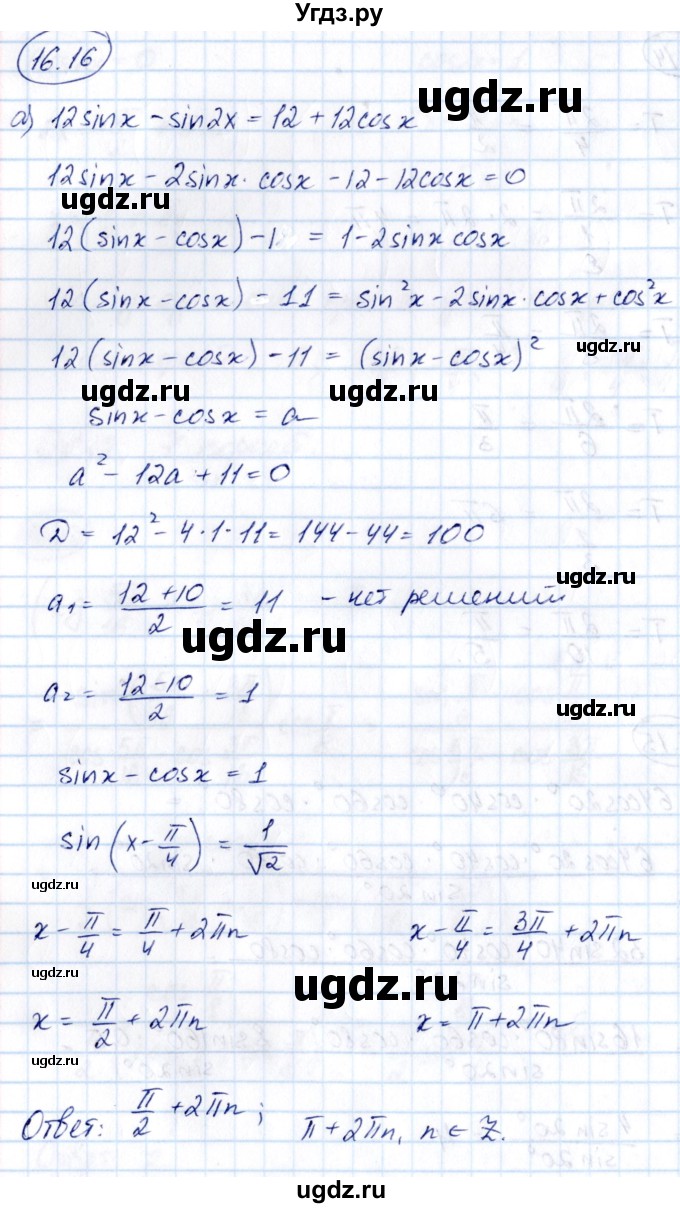 Угдз.ру
16.16
а) 12sinx - sin2x = 12 + 12cosx
12sinx - 2sinx · cosx - 12 - 12cosx = 0
ugdz.ru
12(sinx - cosx) - 1 = 1 - 2sinx cosx
ugdz.ru
12(sinx - cosx) - 11 = sin²x - 2sinx · cosx + cos²x
12(sinx - cosx) - 11 = (sinx - cosx)²
ugdz.ru
ugdz.ru ugdz.ru
sinx - cosx = a
a² - 12a + 11 = 0
D = 12² - 4·1·11 = 144 - 44 = 100
ugdz.ru
a₁ = (12+10)/2 = 11 - нет решений
ugdz.ru
a₂ = (12-10)/2 = 1
ugdz.ru
sinx - cosx = 1
sin(x - π/4) = 1/√2
ugdz.ru
x - π/4 = π/4 + 2πn x - π/4 = 3π/4 + 2πn
ugdz.ru ugdz.ru
x = π/2 + 2πn x = π + 2πn
ugdz.ru
Ответ: π/2 + 2πn; π + 2πn, n ∈ Z.
ugdz.ru